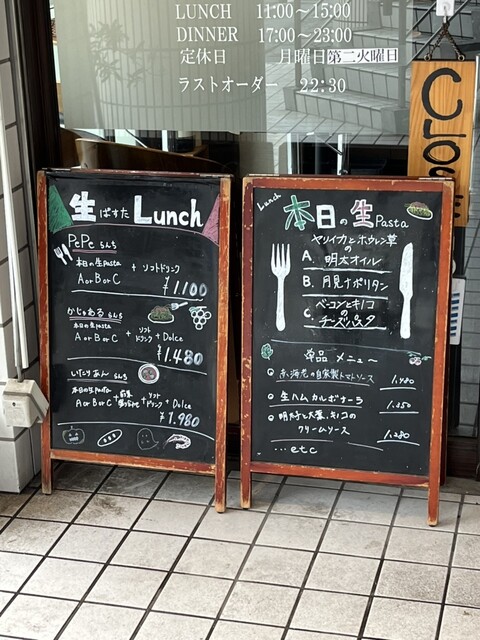 LUNCH 11:00〜15:00
DINNER 17:00〜23:00
定休日 月曜日 第二火曜日
ラストオーダー 22:30
生ぱすた Lunch
PePe らんち
本日の生pasta
A or B or C + ソフトドリンク
¥1,100
かじゅある らんち
本日の生pasta
A or B or C + ソフトドリンク + Dolce
¥1,480
いたりあん らんち
本日の生pasta
A or B or C + 前菜 + ソフトドリンク + Dolce
¥1,980
Lunch
本日の生Pasta
A. ヤリイカとホウレン草の明太オイル
B. 月見ナポリタン
C. ベーコンとキノコのチーズパスタ
単品 メニュー
海老の自家製トマトソース 1,480
生ハム カルボナーラ 1,350
明太子と大葉、キノコの
クリームソース 1,280
...etc
CLOSE